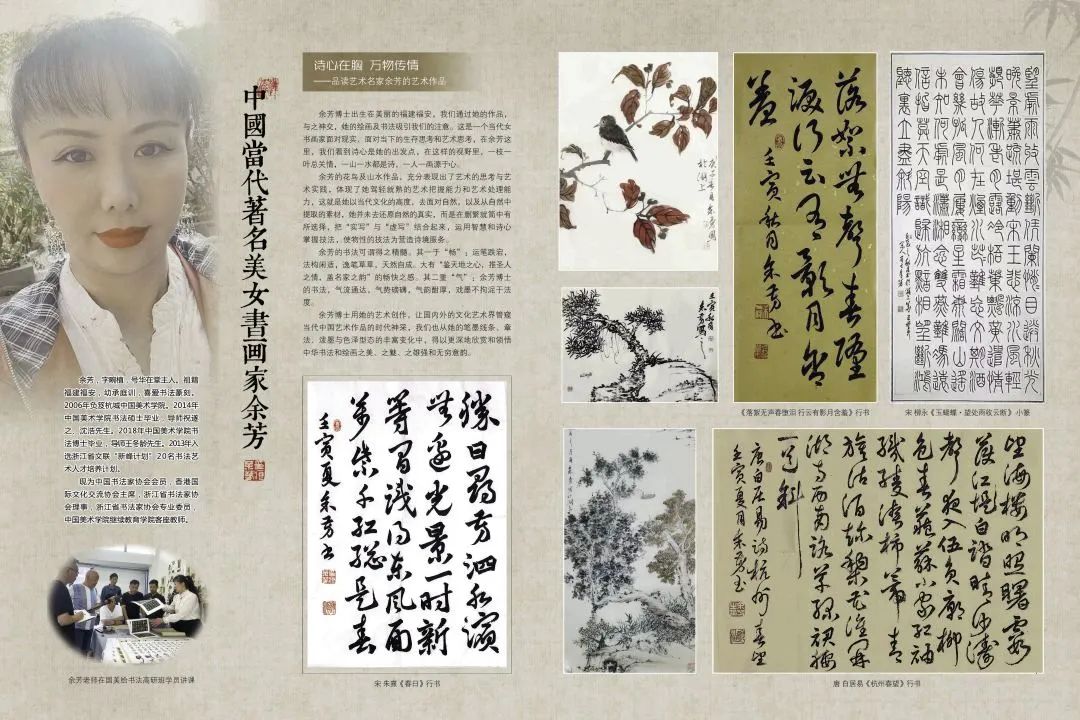 中國當代著名美女書画家余芳
余芳，字畹植，号华在堂主人。祖籍
福建福安，幼承庭训，喜爱书法篆刻。
2006年负笈杭城中国美术学院。2014年
中国美术学院书法硕士毕业，导师祝遂
之、沈浩先生。2018年中国美术学院书
法博士毕业，导师王冬龄先生。2013年入
选浙江省文联“新峰计划”20名书法艺
术人才培养计划。
现为中国书法家协会会员，香港国
际文化交流协会主席，浙江省书法家协
会理事，浙江省书法家协会专业委员，
中国美术学院继续教育学院客座教师。
余芳老师在国美给书法高研班学员讲课
诗心在胸 万物传情
——品读艺术名家余芳的艺术作品
余芳博士出生在美丽的福建福安，我们通过她的作品，
与之神交，她的绘画及书法吸引我们的注意。这是一个当代女
书画家面对现实、面对当下的生存思考和艺术思考，在余芳这
里，我们看到诗心是她的出发点，在这样的视野里，一枝一
叶总关情，一山一水都是诗，一人一画源于心。
余芳的花鸟及山水作品，充分表现出了艺术的思考与艺
术实践，体现了她驾轻就熟的艺术把握能力和艺术处理能
力，这就是她以当代文化的高度，去面对自然，以及从自然中
提取的素材，她并未去还原自然的真实，而是在删繁就简中有
所选择，把“实写”与“虚写”结合起来，运用智慧和诗心
掌握技法，使物性的技法为营造诗境服务。
余芳的书法可谓得之精髓。其一于“畅”，运笔跌宕，
法构闲适，逸笔草草，天然自成。大有“鉴天地之心，推圣人
之情，盖名家之韵”的畅快之感。其二重“气”，余芳博士
的书法，气流通达，气势磅礴，气韵酣厚，戏墨不拘泥于法
度。
余芳博士用她的艺术创作，让国内外的文化艺术界管窥
当代中国艺术作品的时代神采，我们也从她的笔墨线条、章
法、泼墨与色泽型态的丰富变化中，得以更深地欣赏和领悟
中华书法和绘画之美、之魅、之雄强和无穷意韵。
勝日尋芳泗水濱
無邊光景一时新
等閒識得东風面
萬紫千红總是春
壬寅夏余芳书
宋 朱熹《春日》行书
落絮無聲春堕
淚行云有影月含
羞
壬寅秋月余芳书
《落絮无声春堕泪 行云有影月含羞》行书
望處雨收雲斷憑闌悄悄目送秋光
晚景蕭疏堪動宋玉悲涼水風輕
宋 柳永《玉蝴蝶·望处雨收云断》小篆
望海樓明照曙霞
護江堤白踏晴沙濤
聲夜入伍員廟柳
色春藏蘇小家红袖
織綾誇柿蒂青
旗沽酒趁梨花誰開
湖寺西南路草绿裙腰
一道斜
唐白居易诗杭州春望
壬寅夏月余芳书
唐 白居易《杭州春望》行书